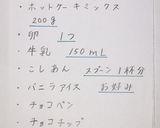 ・ホットケーキミックス
200g
・卵 1つ
・牛乳 150mL
・こしあん スプーン1杯分
・バニラアイス お好み
・チョコペン
・チョコチップ